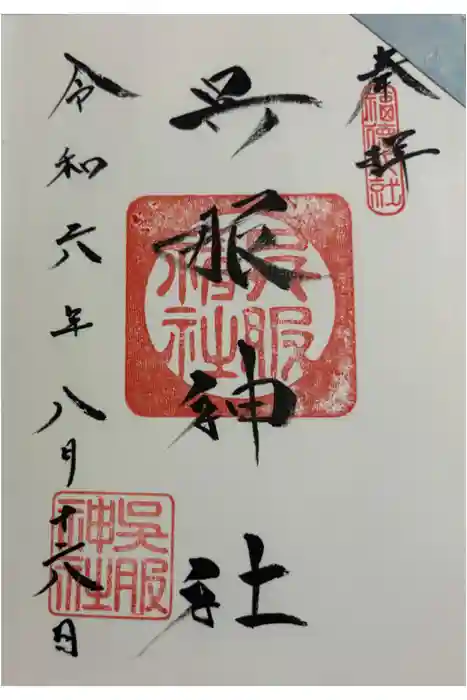 奉拝
呉服神社
呉服
神社
令和六年八月十六日
吳服
神社